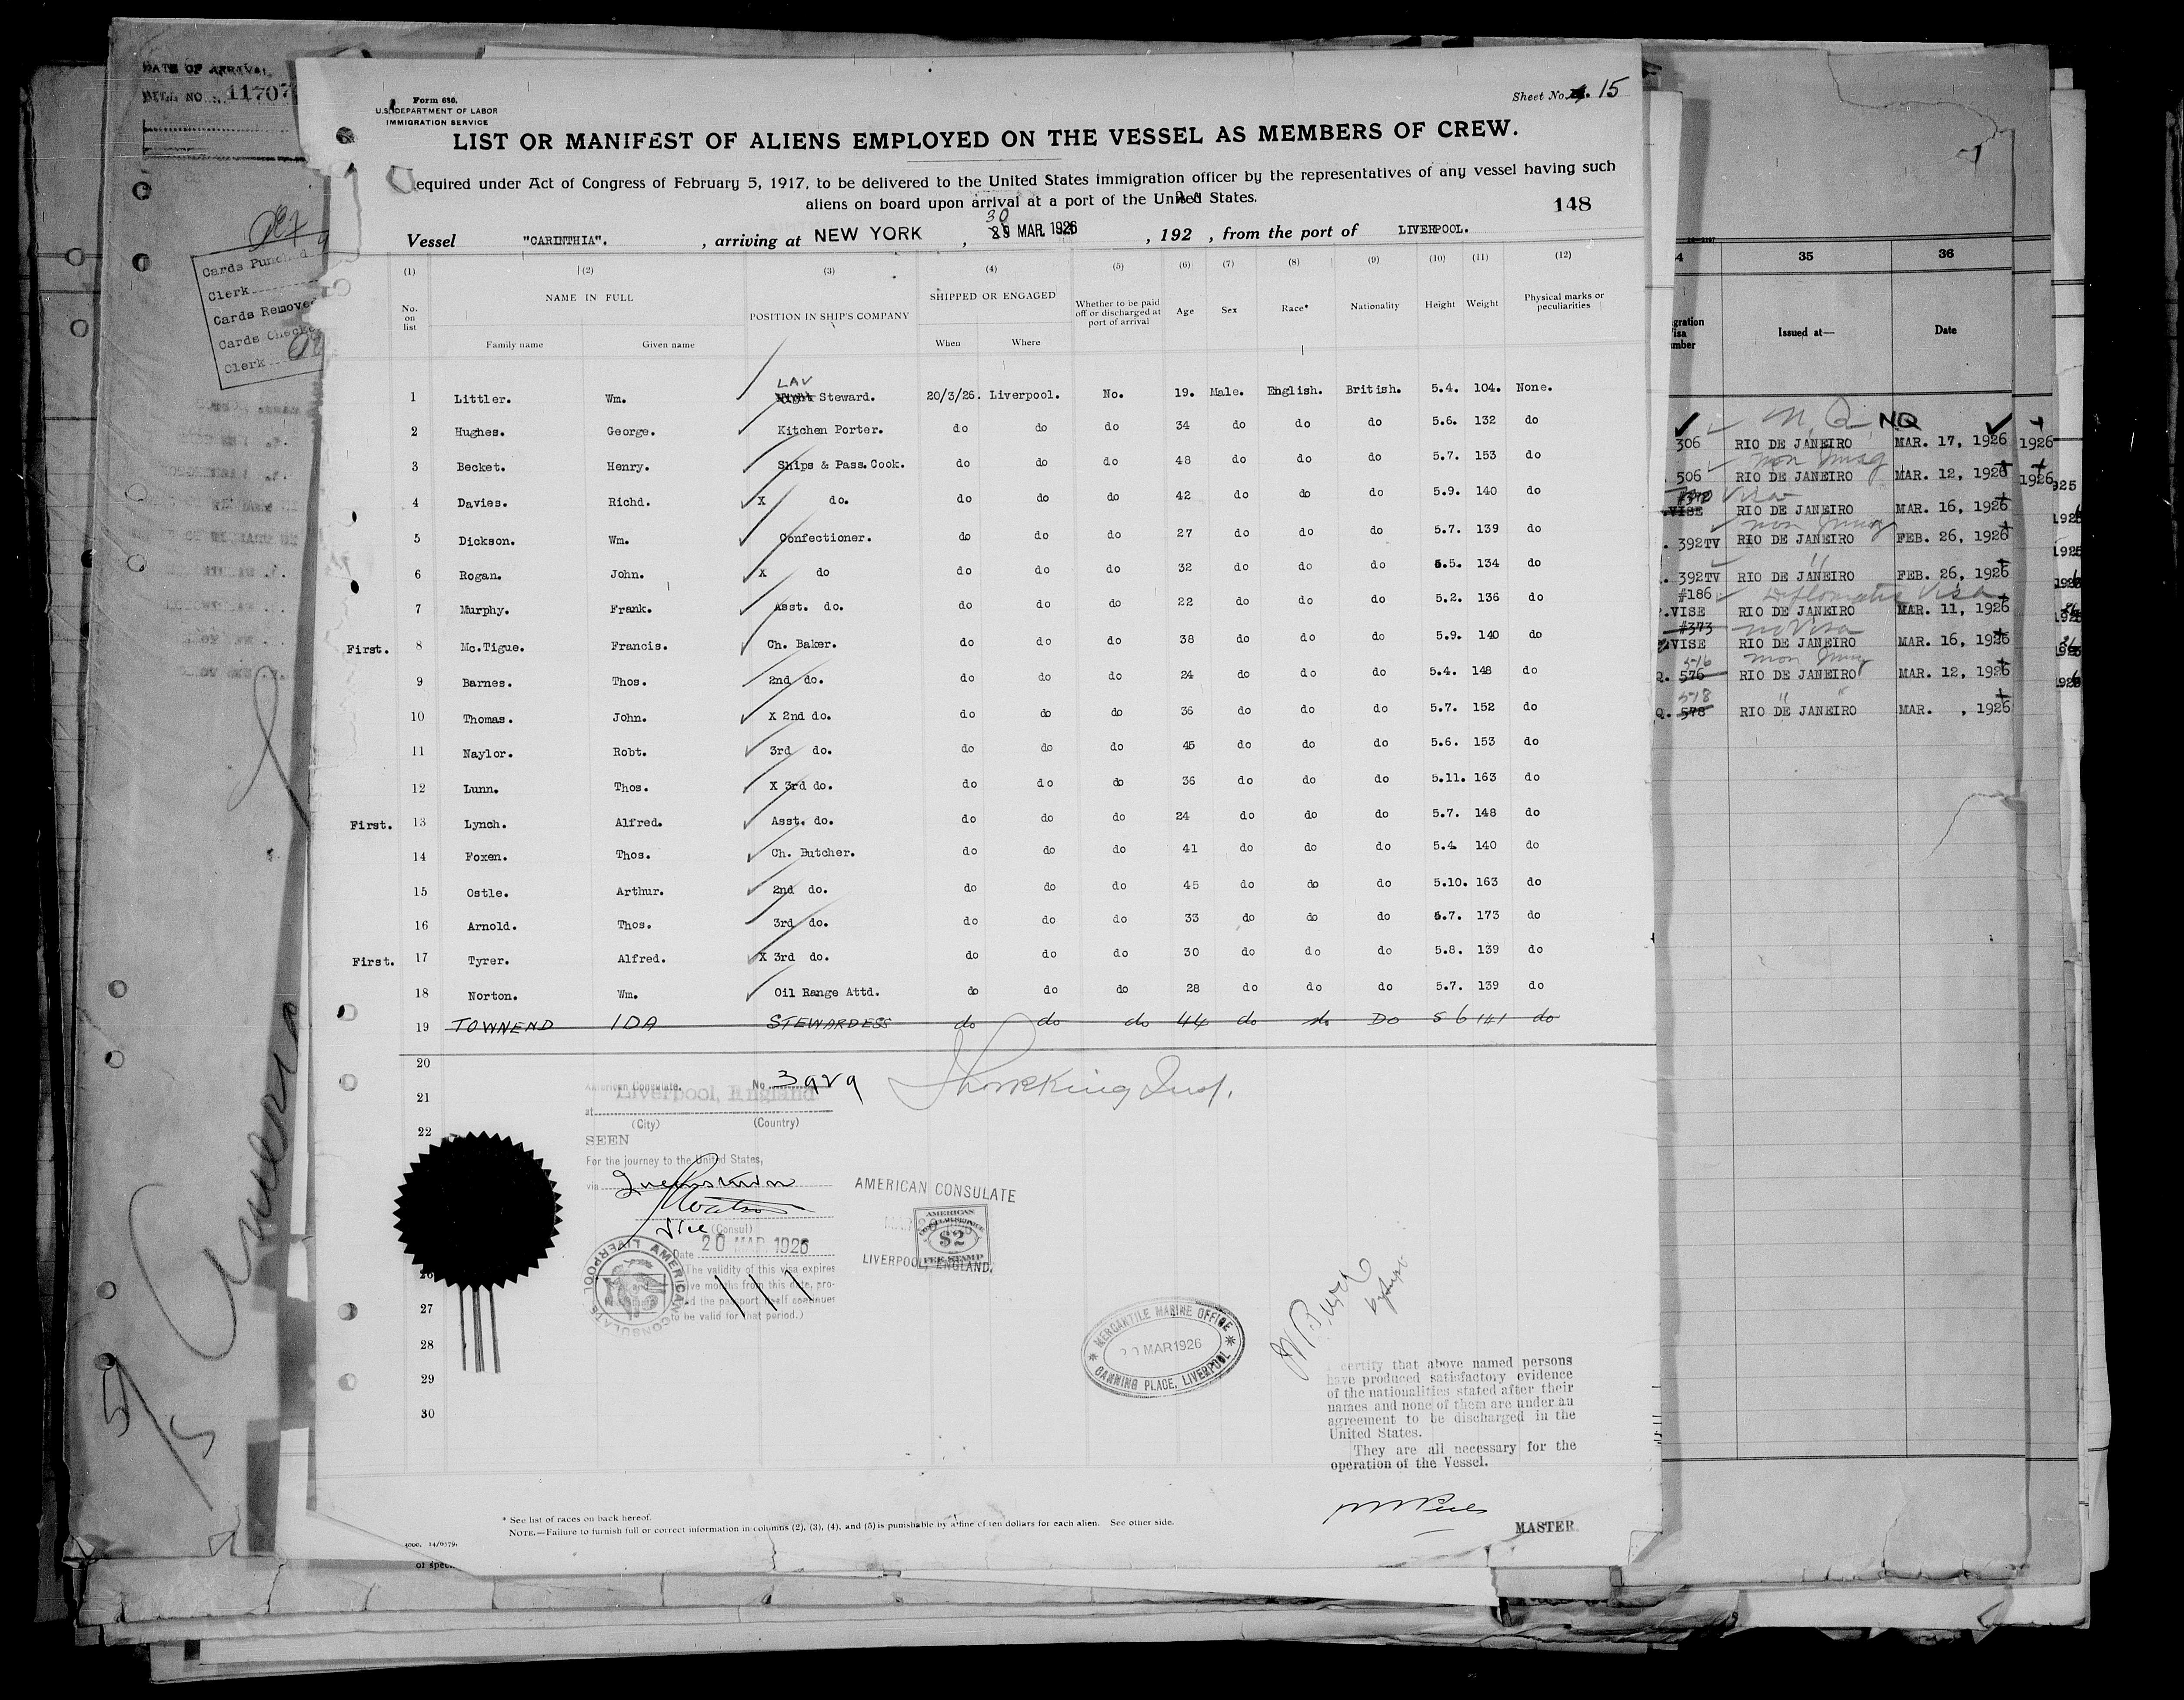 DATE OF ARRIVAL
BILL NO. 11707
Cards Punched
Clerk
Cards Removed
Cards Checked
Clerk
Form 680.
U.S. DEPARTMENT OF LABOR
IMMIGRATION SERVICE
Sheet No. 15
LIST OR MANIFEST OF ALIENS EMPLOYED ON THE VESSEL AS MEMBERS OF CREW.
equired under Act of Congress of February 5, 1917, to be delivered to the United States immigration officer by the representatives of any vessel having such
aliens on board upon arrival at a port of the United States.
148
30
Vessel "CARINTHIA". , arriving at NEW YORK , MAR. 1926 , 192 , from the port of LIVERPOOL.
(1) (2) (3) (4) (5) (6) (7) (8) (9) (10) (11) (12)
No. on list NAME IN FULL POSITION IN SHIP'S COMPANY SHIPPED OR ENGAGED Whether to be paid off or discharged at port of arrival Age Sex Race* Nationality Height Weight Physical marks or peculiarities
Family name Given name When Where
LAV
1 Littler. Wm. Night Steward. 20/3/26. Liverpool. No. 19. Male. English. British. 5.4. 104. None.
2 Hughes. George. Kitchen Porter. do do do 34 do do do 5.6. 132 do
3 Becket. Henry. Ships & Pass.Cook. do do do 48 do do do 5.7. 153 do
4 Davies. Richd. X do. do do do 42 do do do 5.9. 140 do
5 Dickson. Wm. Confectioner. do do do 27 do do do 5.7. 139 do
6 Rogan. John. X do do do do 32 do do do 5.5. 134 do
7 Murphy. Frank. Asst. do. do do do 22 do do do 5.2. 136 do
First. 8 Mc.Tigue. Francis. Ch. Baker. do do do 38 do do do 5.9. 140 do
9 Barnes. Thos. 2nd do. do do do 24 do do do 5.4. 148 do
10 Thomas. John. X 2nd do. do do do 36 do do do 5.7. 152 do
11 Naylor. Robt. 3rd do. do do do 45 do do do 5.6. 153 do
12 Lunn. Thos. X 3rd do. do do do 36 do do do 5.11. 163 do
First. 13 Lynch. Alfred. Asst. do. do do do 24 do do do 5.7. 148 do
14 Foxen. Thos. Ch. Butcher. do do do 41 do do do 5.4. 140 do
15 Ostle. Arthur. 2nd do. do do do 45 do do do 5.10. 163 do
16 Arnold. Thos. 3rd do. do do do 33 do do do 5.7. 173 do
First. 17 Tyrer. Alfred. X 3rd do. do do do 30 do do do 5.8. 139 do
18 Norton. Wm. Oil Range Attd. do do do 28 do do do 5.7. 139 do
19 TOWNEND IDA STEWARDESS do do do 44 do do DO 5 6 141 do
20
21
22
American Consulate. No. 3929
at Liverpool, England
(City) (Country)
SEEN
For the journey to the United States,
via Queenstown
Vice (Consul)
Date 20 MAR. 1926
The validity of this visa expires
months from this date, pro-
the passport itself continues
to be valid for that period.)
AMERICAN CONSULATE LIVERPOOL
AMERICAN CONSULATE
AMERICAN
$2
FEE STAMP
LIVERPOOL, ENGLAND.
27
28
29
30
MERCANTILE MARINE OFFICE
20 MAR 1926
CANNING PLACE, LIVERPOOL
certify that above named persons
have produced satisfactory evidence
of the nationalities stated after their
names and none of them are under an
agreement to be discharged in the
United States.
They are all necessary for the
operation of the Vessel.
MASTER
* See list of races on back hereof.
NOTE.—Failure to furnish full or correct information in columns (2), (3), (4), and (5) is punishable by a fine of ten dollars for each alien. See other side.
35 36
Issued at— Date
NQ
306 RIO DE JANEIRO MAR. 17, 1926
506 RIO DE JANEIRO MAR. 12, 1926
VISE RIO DE JANEIRO MAR. 16, 1926
392TV RIO DE JANEIRO FEB. 26, 1926
392TV RIO DE JANEIRO FEB. 26, 1926
#186 Diplomatic Visa
VISE RIO DE JANEIRO MAR. 11, 1926
#373 no Visa
VISE RIO DE JANEIRO MAR. 16, 1926
576 RIO DE JANEIRO MAR. 12, 1926
578 RIO DE JANEIRO MAR. , 1926